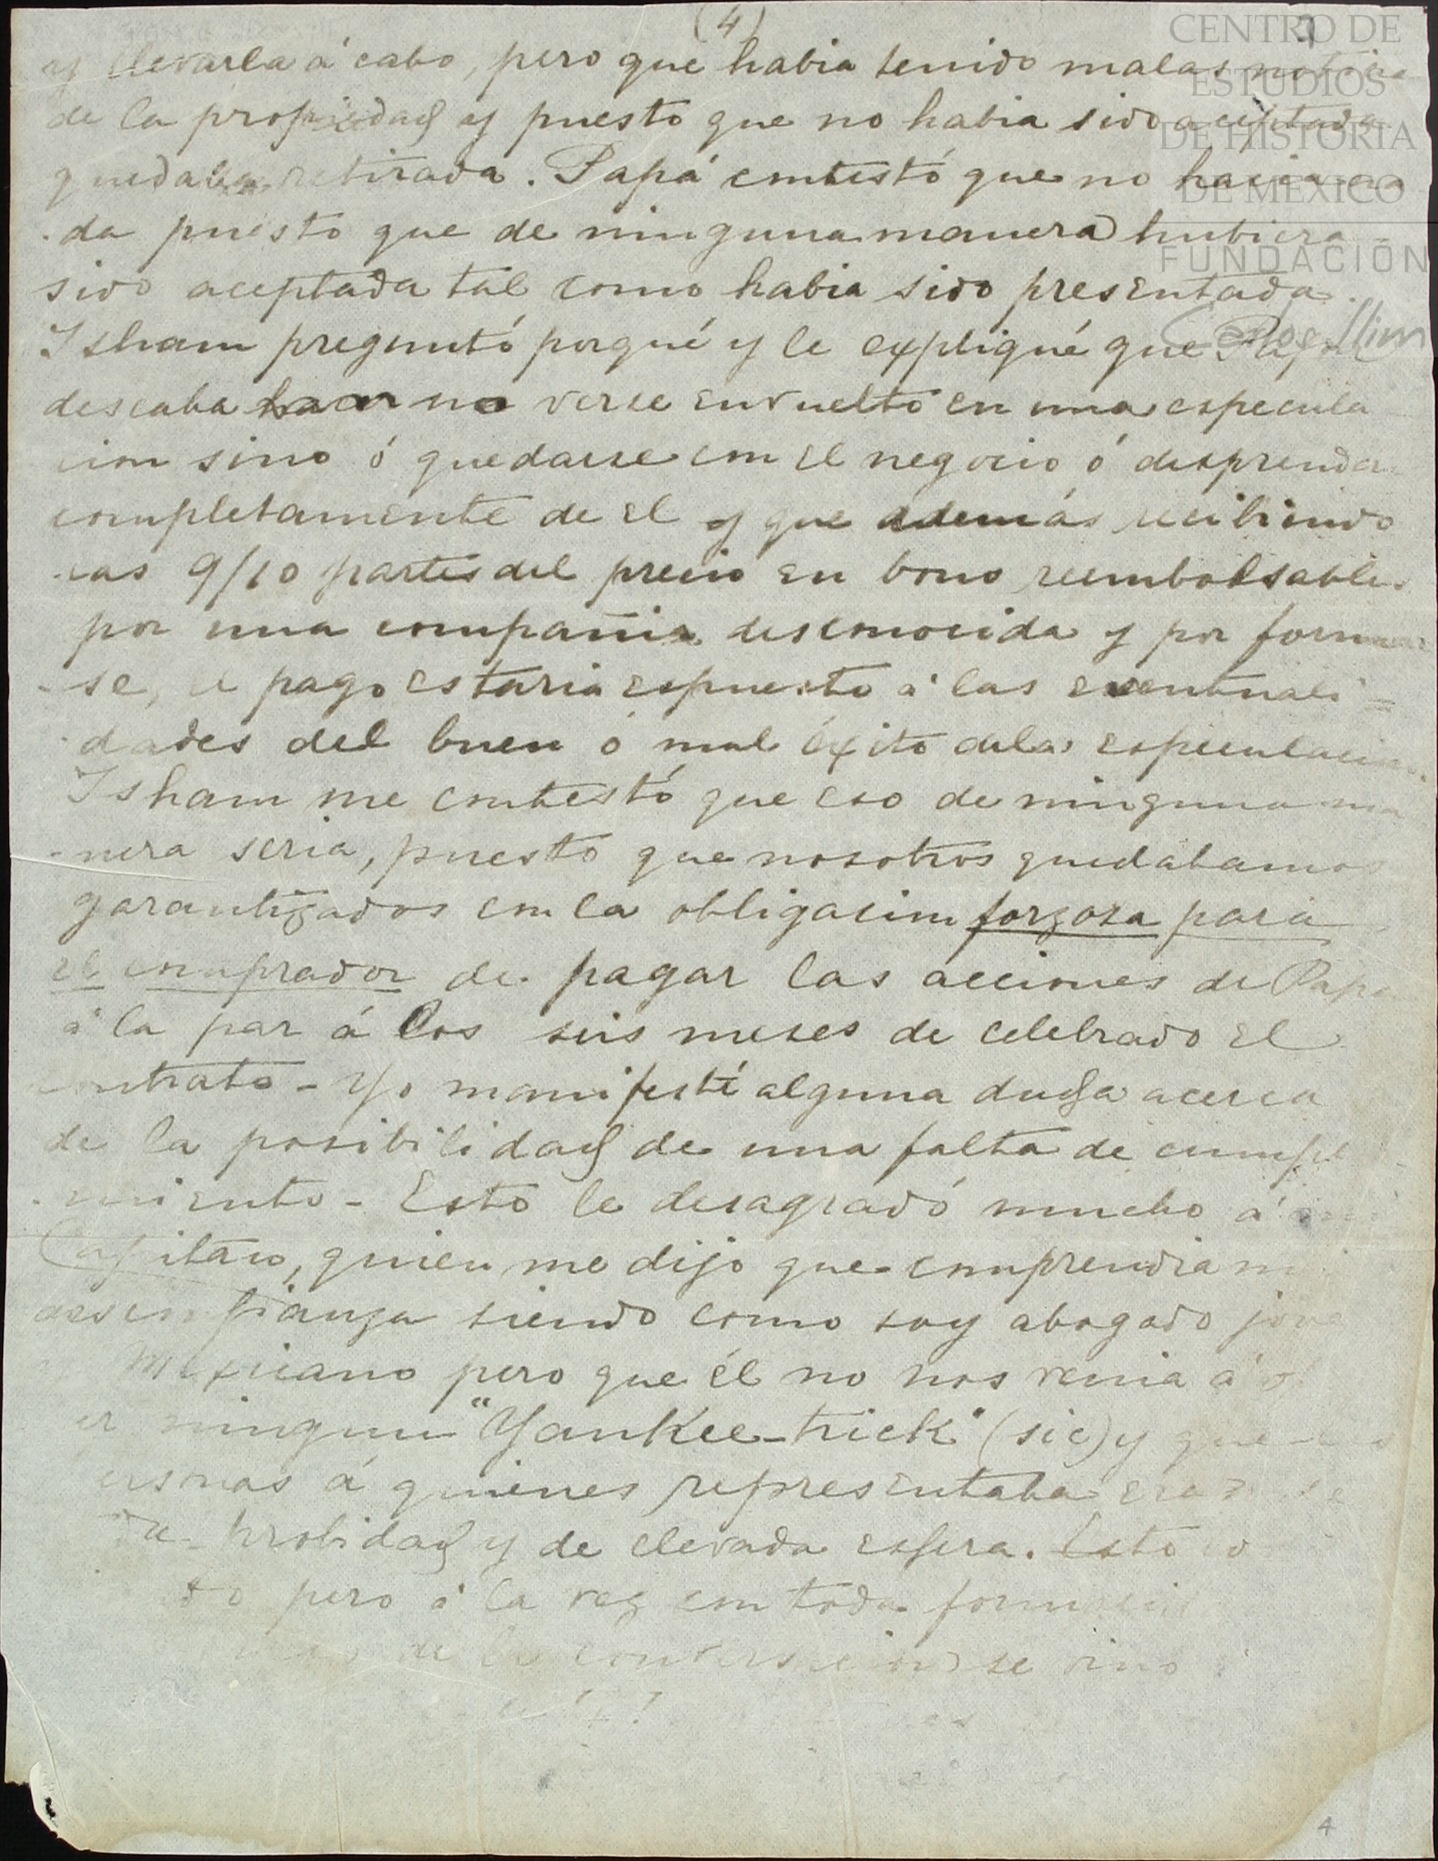 (4)
CENTRO DE
ESTUDIOS
DE HISTORIA
DE MÉXICO
FUNDACIÓN
Carlos Slim
y llevarla á cabo, pero que habia tenido malas noticias
de la propiedad y puesto que no habia sido aceptada
quedaba retirada. Papá contestó que no hacia na
da puesto que de ninguna manera hubiera
sido aceptada tal como habia sido presentada.
Isham preguntó porqué y le expliqué que Papá
deseaba no verse envuelto en una especula
cion sino ó quedarse con el negocio ó desprender
completamente de el y que además recibiendo
las 9/10 partes del precio en bono reembolsables
por una compañia desconocida y por formar
se, el pago estaria espuesto á las eventuali=
dades del buen ó mal éxito de la especulacion.
Isham me contestó que eso de ninguna ma
nera seria, puesto que nosotros quedabamos
garantizados con la obligacion forzosa para
el comprador de pagar las acciones de Papá
á la par á los seis meses de celebrado el
contrato - Yo manifesté alguna duda acerca
de la posibilidad de una falta de cumpli
miento - Esto le desagradó mucho á mi
Capitan, quien me dijo que comprendia mi
desconfianza siendo como soy abogado jove
Mexicano pero que él no nos venia á
ningun "Yankee-trick" (sic) y que
personas á quienes representaba eran de
probidad y de elevada esfera. Esto lo
pero á la vez con toda
de la conversacion se vino
4